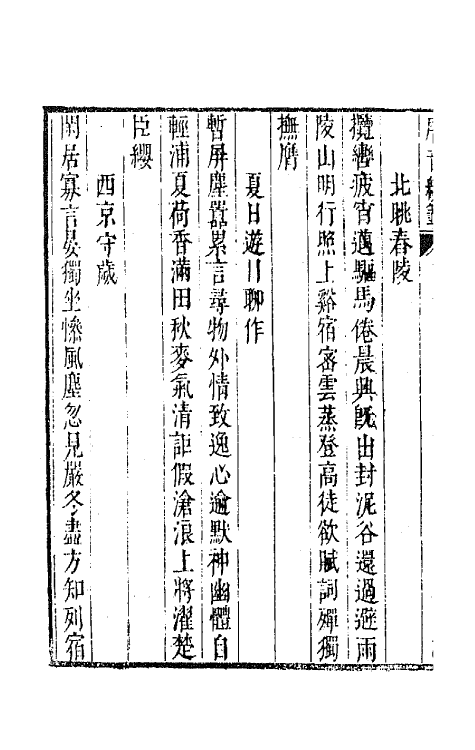 北眺舂陵
攬轡疲宵邁驅馬倦晨興旣出封泥谷還過避雨
陵山明行照上谿宿密雲蒸登高徒欲賦詞殫獨
撫膺
夏日遊目聊作
暫屏塵囂累言尋物外情致逸心逾默神幽體自
輕浦夏荷香滿田秋麥氣清詎假滄浪上將濯楚
臣纓
西京守歲
閑居寡言晏獨坐慘風塵忽見嚴冬盡方知列宿